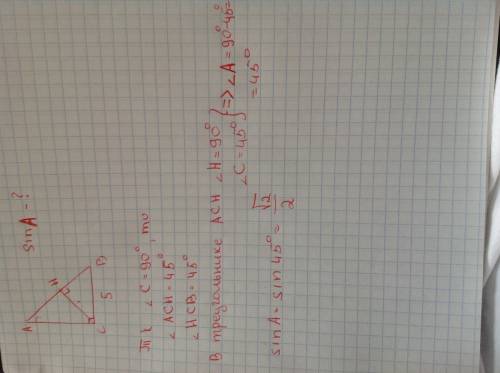 sin A = ?
A
H
B
C
5
т к ∠C = 90°, то
∠ACH = 45°
∠HCB = 45°
В треугольнике ACH ∠H = 90° } => ∠A = 90° - 45° =
∠C = 45° } = 45°
sin A = sin 45° = √2/2